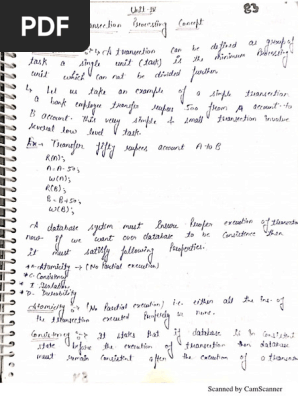 PDF
Unit-IV
83
Transection Processing Concept
A transection can be defined as group of
task a single unit (task) is the minimum Processing
unit which can not be divided further
↳ Let us take an example of a simple transection
a bank employe transfer rupees 500 from A account to
B account. This very simple & small transaction involve
several low level task.
Ex → Transfer fifty rupees account A to B
R(A);
A = A - 50;
W(A);
R(B);
B = B + 50;
W(B);
A database system must Insure Proper execution of
now if we want over database to be Consistence then
it must satisfy following Properties.
* A - Atomicity → (No Partial execution)
* C. Consistency
* I Isolation
* D. Durability
Atomicity → (No Partial execution) i.e. either all the ins. of
the transection executed Properly or none.
Consistency → It states that if database is in Consistent
state before the execution of transection then database
must remain consistent after the execution of a
Scanned by CamScanner